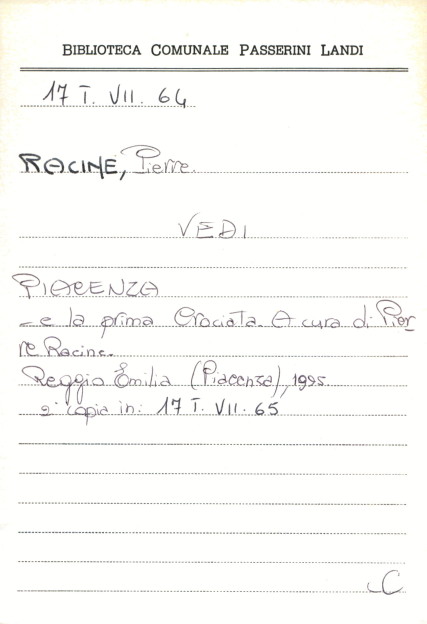 BIBLIOTECA COMUNALE PASSERINI LANDI
17 T. VII. 64
RACINE, Pierre.
VEDI
PIACENZA
- e la prima Crociata. A cura di Pier
re Racine.
Reggio Emilia (Piacenza), 1995
2ª copia in: 17 T. VII. 65
C